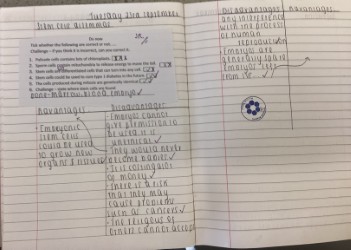 Tuesday 23rd September
Stem cell dilemmas
Do now
For whether the following are correct or not...
Challenge – if you think it is incorrect, can you correct it.
1. Palisade cells contains lots of chloroplasts.
2. Sperm cells contain mitochondria to release energy to move the tail.
3. Stem cells are differentiated cells that can turn into any cell.
4. Stem cells could be used to cure type 1 diabetes in the future.
5. The cells produced during mitosis are genetically identical.
6. Challenge – state where stem cells are found
Bone marrow, blood, embryo
Advantages
• Embryonic
stem cells
could be used
to grow new
organs & tissues
Disadvantages
• Embryos cannot
give permission to
be used it is
unethical
• They would never
become babies
• It is costing a lot
of money
• There is a risk
that they may
cause problems
such as cancers
• The religious of
others cannot accept
Disadvantages
any interference
with the process
of human
reproduction
• Embryo are
generally
Embryo
stem
Advantages